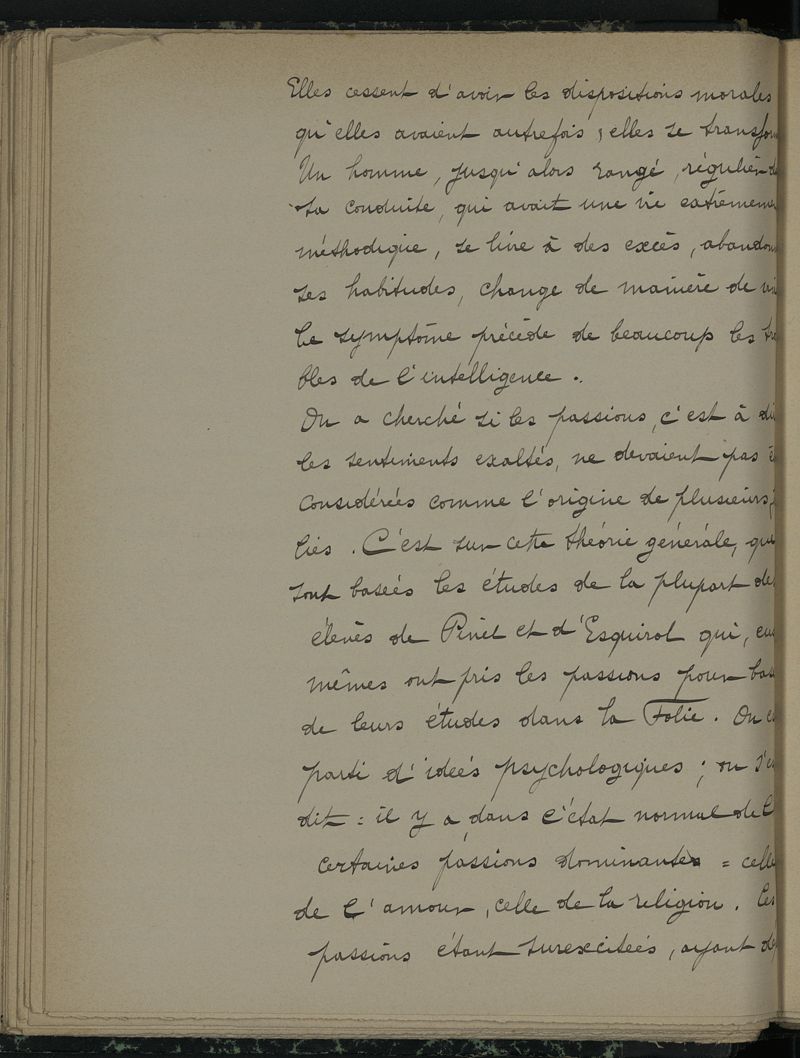 Elles cessent d'avoir les dispositions morales
qu'elles avaient autrefois, elles se transfor
Un homme, jusqu'alors rangé, régulier d
sa conduite, qui avait une vie extrêmeme
méthodique, se livre à des excès, abandon
ses habitudes, change de manière de vi
Ce symptôme précède de beaucoup les tr
bles de l'intelligence.
On a cherché si les passions, c'est à di
les sentiments exaltés, ne devaient pas ê
considérées comme l'origine de plusieurs f
lies. C'est sur cette théorie générale, que
sont basées les études de la plupart de
élèves de Pinel et d'Esquirol qui, eux
mêmes ont pris les passions pour bas
de leurs études dans la Folie. On e
parti d'idées psychologiques ; on s'e
dit : il y a dans l'état normal de l
certaines passions dominantes : celle
de l'amour, celle de la religion. Ces
passions étant surexcitées, ayant d